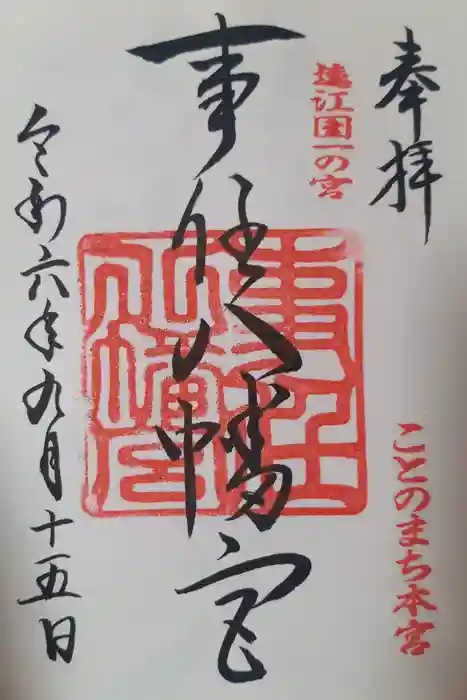 奉拝
遠江国一の宮
ことのまち本宮
事任八幡宮
令和六年九月十五日